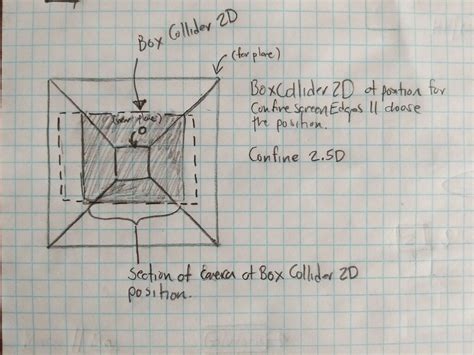 Box Collider 2D
(far plane)
(near plane)
BoxCollider 2D at position for
Confine screen Edges || choose
the position.
Confine 2.5D
Section of Camera at Box Collider 2D
position.